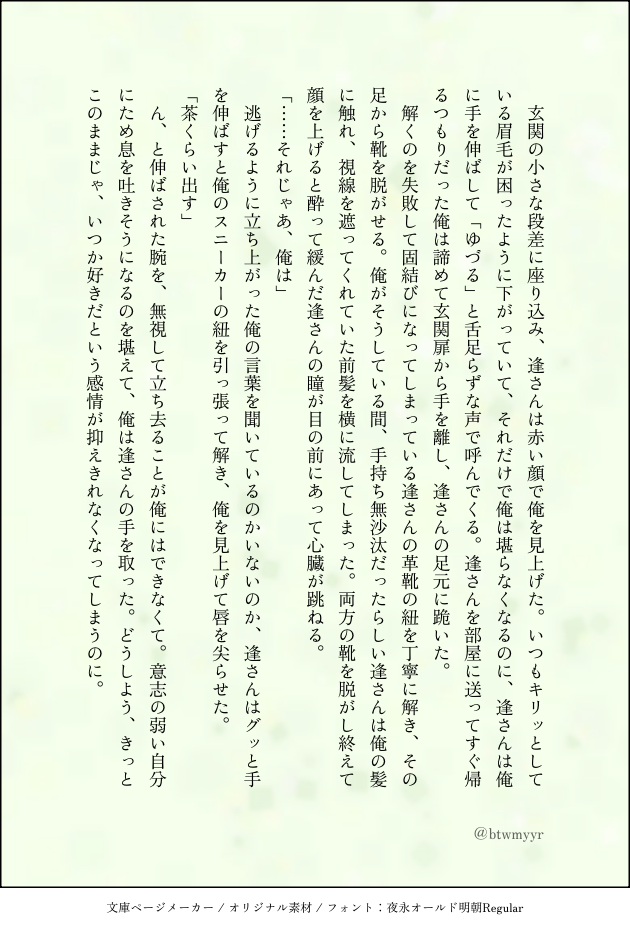 玄関の小さな段差に座り込み、逢さんは赤い顔で俺を見上げた。いつもキリッとして
いる眉毛が困ったように下がっていて、それだけで俺は堪らなくなるのに、逢さんは俺
に手を伸ばして「ゆづる」と舌足らずな声で呼んでくる。逢さんを部屋に送ってすぐ帰
るつもりだった俺は諦めて玄関扉から手を離し、逢さんの足元に跪いた。
解くのを失敗して固結びになってしまっている逢さんの革靴の紐を丁寧に解き、その
足から靴を脱がせる。俺がそうしている間、手持ち無沙汰だったらしい逢さんは俺の髪
に触れ、視線を遮ってくれていた前髪を横に流してしまった。両方の靴を脱がし終えて
顔を上げると酔って緩んだ逢さんの瞳が目の前にあって心臓が跳ねる。
「……それじゃあ、俺は」
逃げるように立ち上がった俺の言葉を聞いているのかいないのか、逢さんはグッと手
を伸ばすと俺のスニーカーの紐を引っ張って解き、俺を見上げて唇を尖らせた。
「茶くらい出す」
ん、と伸ばされた腕を、無視して立ち去ることが俺にはできなくて。意志の弱い自分
にため息を吐きそうになるのを堪えて、俺は逢さんの手を取った。どうしよう、きっと
このままじゃ、いつか好きだという感情が抑えきれなくなってしまうのに。
@btwmyyr
文庫ページメーカー / オリジナル素材 / フォント：夜永オールド明朝Regular